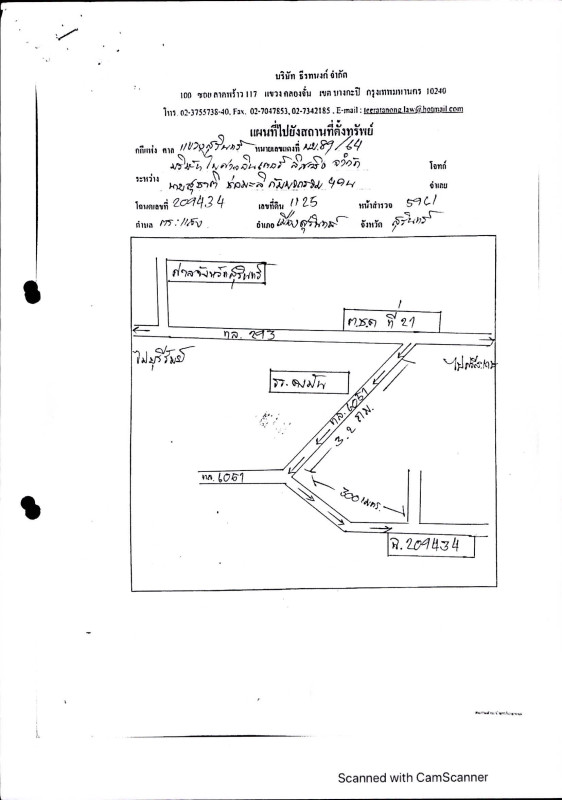 บริษัท ธีรทนงก์ จำกัด
100 ซอย ลาดพร้าว 117 แขวง คลองจั่น เขต บางกะปิ กรุงเทพมหานคร 10240
โทร. 02-3755738-40, Fax. 02-7047853, 02-7342185 , E-mail : teeratanong.law@hotmail.com
แผนที่ไปยังสถานที่ตั้งทรัพย์
คดีแพ่ง ศาล แขวงสุรินทร์ หมายเลขแดงที่ ผบ.89/64
บริษัท ลิสซิ่ง จำกัด โจทก์
ระหว่าง
นายสุชาติ จำเลย
โฉนดเลขที่ 209434 เลขที่ดิน 1125 หน้าสำรวจ
ตำบล อำเภอ เมืองสุรินทร์ จังหวัด สุรินทร์
ศาลจังหวัดสุรินทร์
ต.ช.ด ที่ 21
ทล. 293
ไปบุรีรัมย์
ทล. 6051
3.2 กม.
ทล. 6051
300 เมตร.
ที่. 209434
Scanned with CamScanner